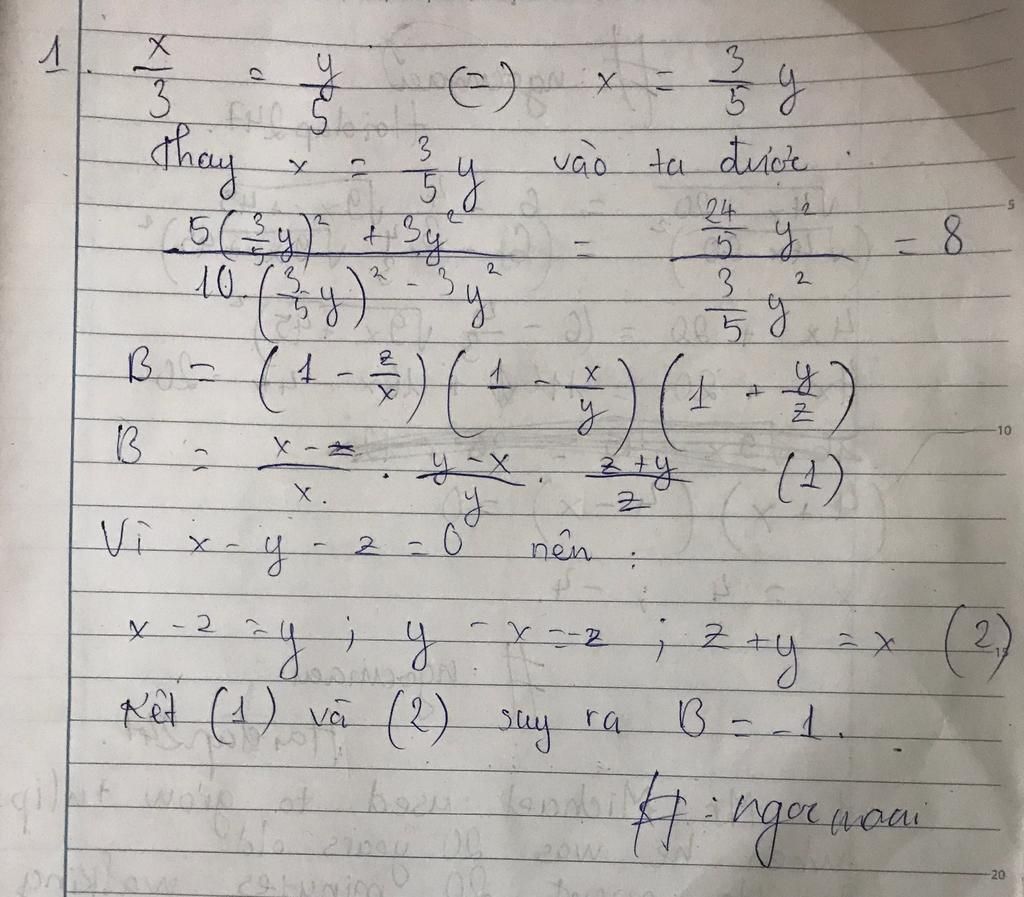 1. x/3 = y/5 (=) x = 3/5 y
Thay x = 3/5 y vào ta được :
5(3/5 y)² + 3y² / 10.(3/5 y)² - 3y² = 24/5 y² / 3/5 y² = 8
B = (1 - z/x) (1 - x/y) (1 + y/z)
B = x - z / x . y - x / y . z + y / z (1)
Vì x - y - z = 0 nên :
x - z = y ; y - x = -z ; z + y = x (2)
Kết (1) và (2) suy ra B = -1.
# : ngocmaai
5
10
15
20